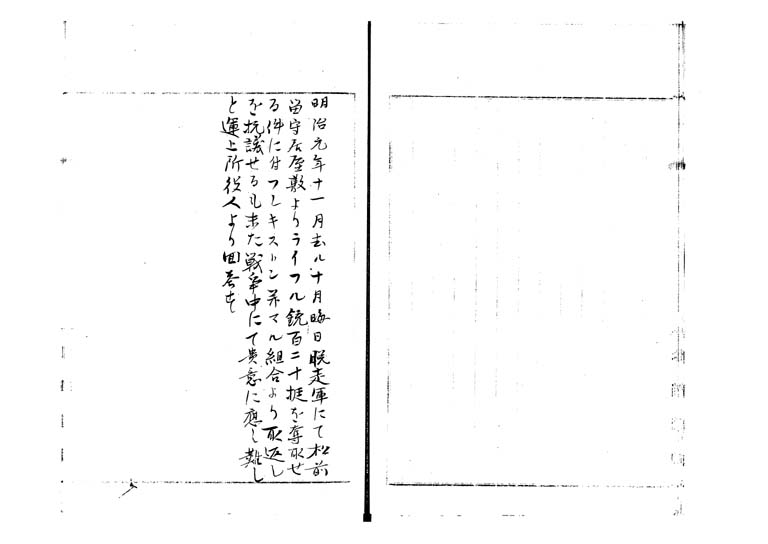 明治元年十一月去ル十月晦日脱走軍にて松前
留守居屋敷よりライフル銃百二十挺を奪取せ
る件に付フレキストン並マル組合より取返し
を抗議せるも未た戦争中にて貴意に應し難し
と運上所役人より回答す